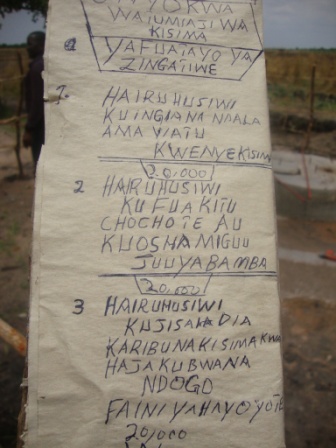 WATUMIAJI WA
KISIMA
YAFUATAYO YA
ZINGATIWE
1. HAIRUHUSIWI
KUINGIA NA NDALA
AMA VIATU
KWENYE KISIMA
20,000
2 HAIRUHUSIWI
KUFUA KITU
CHOCHOTE AU
KUOSHA MIGUU
JUU YA BAMBA
20,000
3 HAIRUHUSIWI
KUJISAHADIA
KARIBU NA KISIMA KWA
HAJA KUBWA NA
NDOGO
FAINI YA HAYO YOTE
20,000